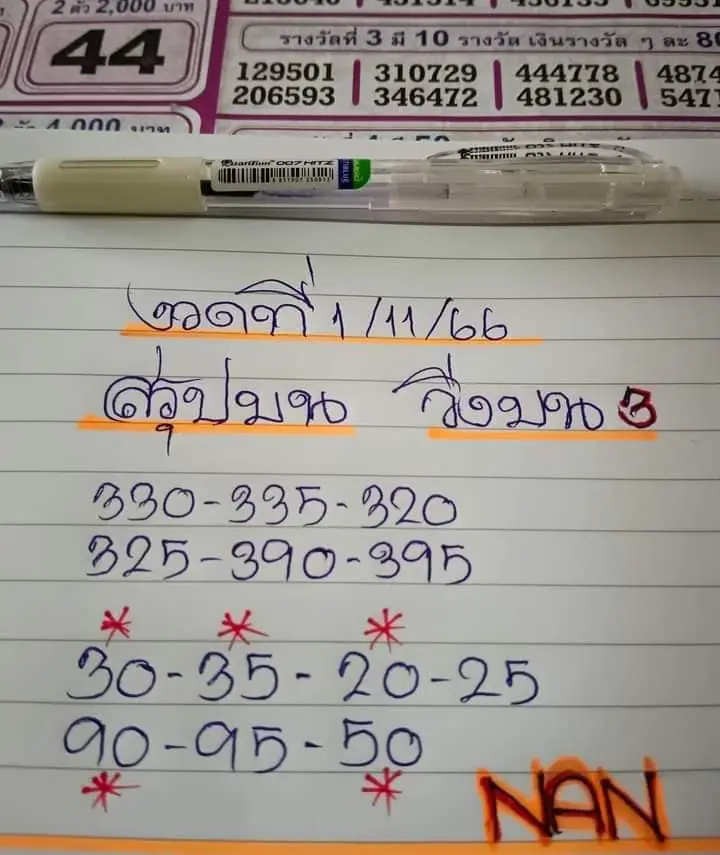 2 ตัว 2,000 บาท
44
รางวัลที่ 3 มี 10 รางวัล เงินรางวัล ๆ ละ 80
129501 310729 444778 4874
206593 346472 481230 5471
4,000 บาท
Quantum 007 HITZ
งวดที่ 1/11/66
สรุปบน วิ่งบน 3
330-335-320
325-390-395
30-35-20-25
90-95-50
NAN